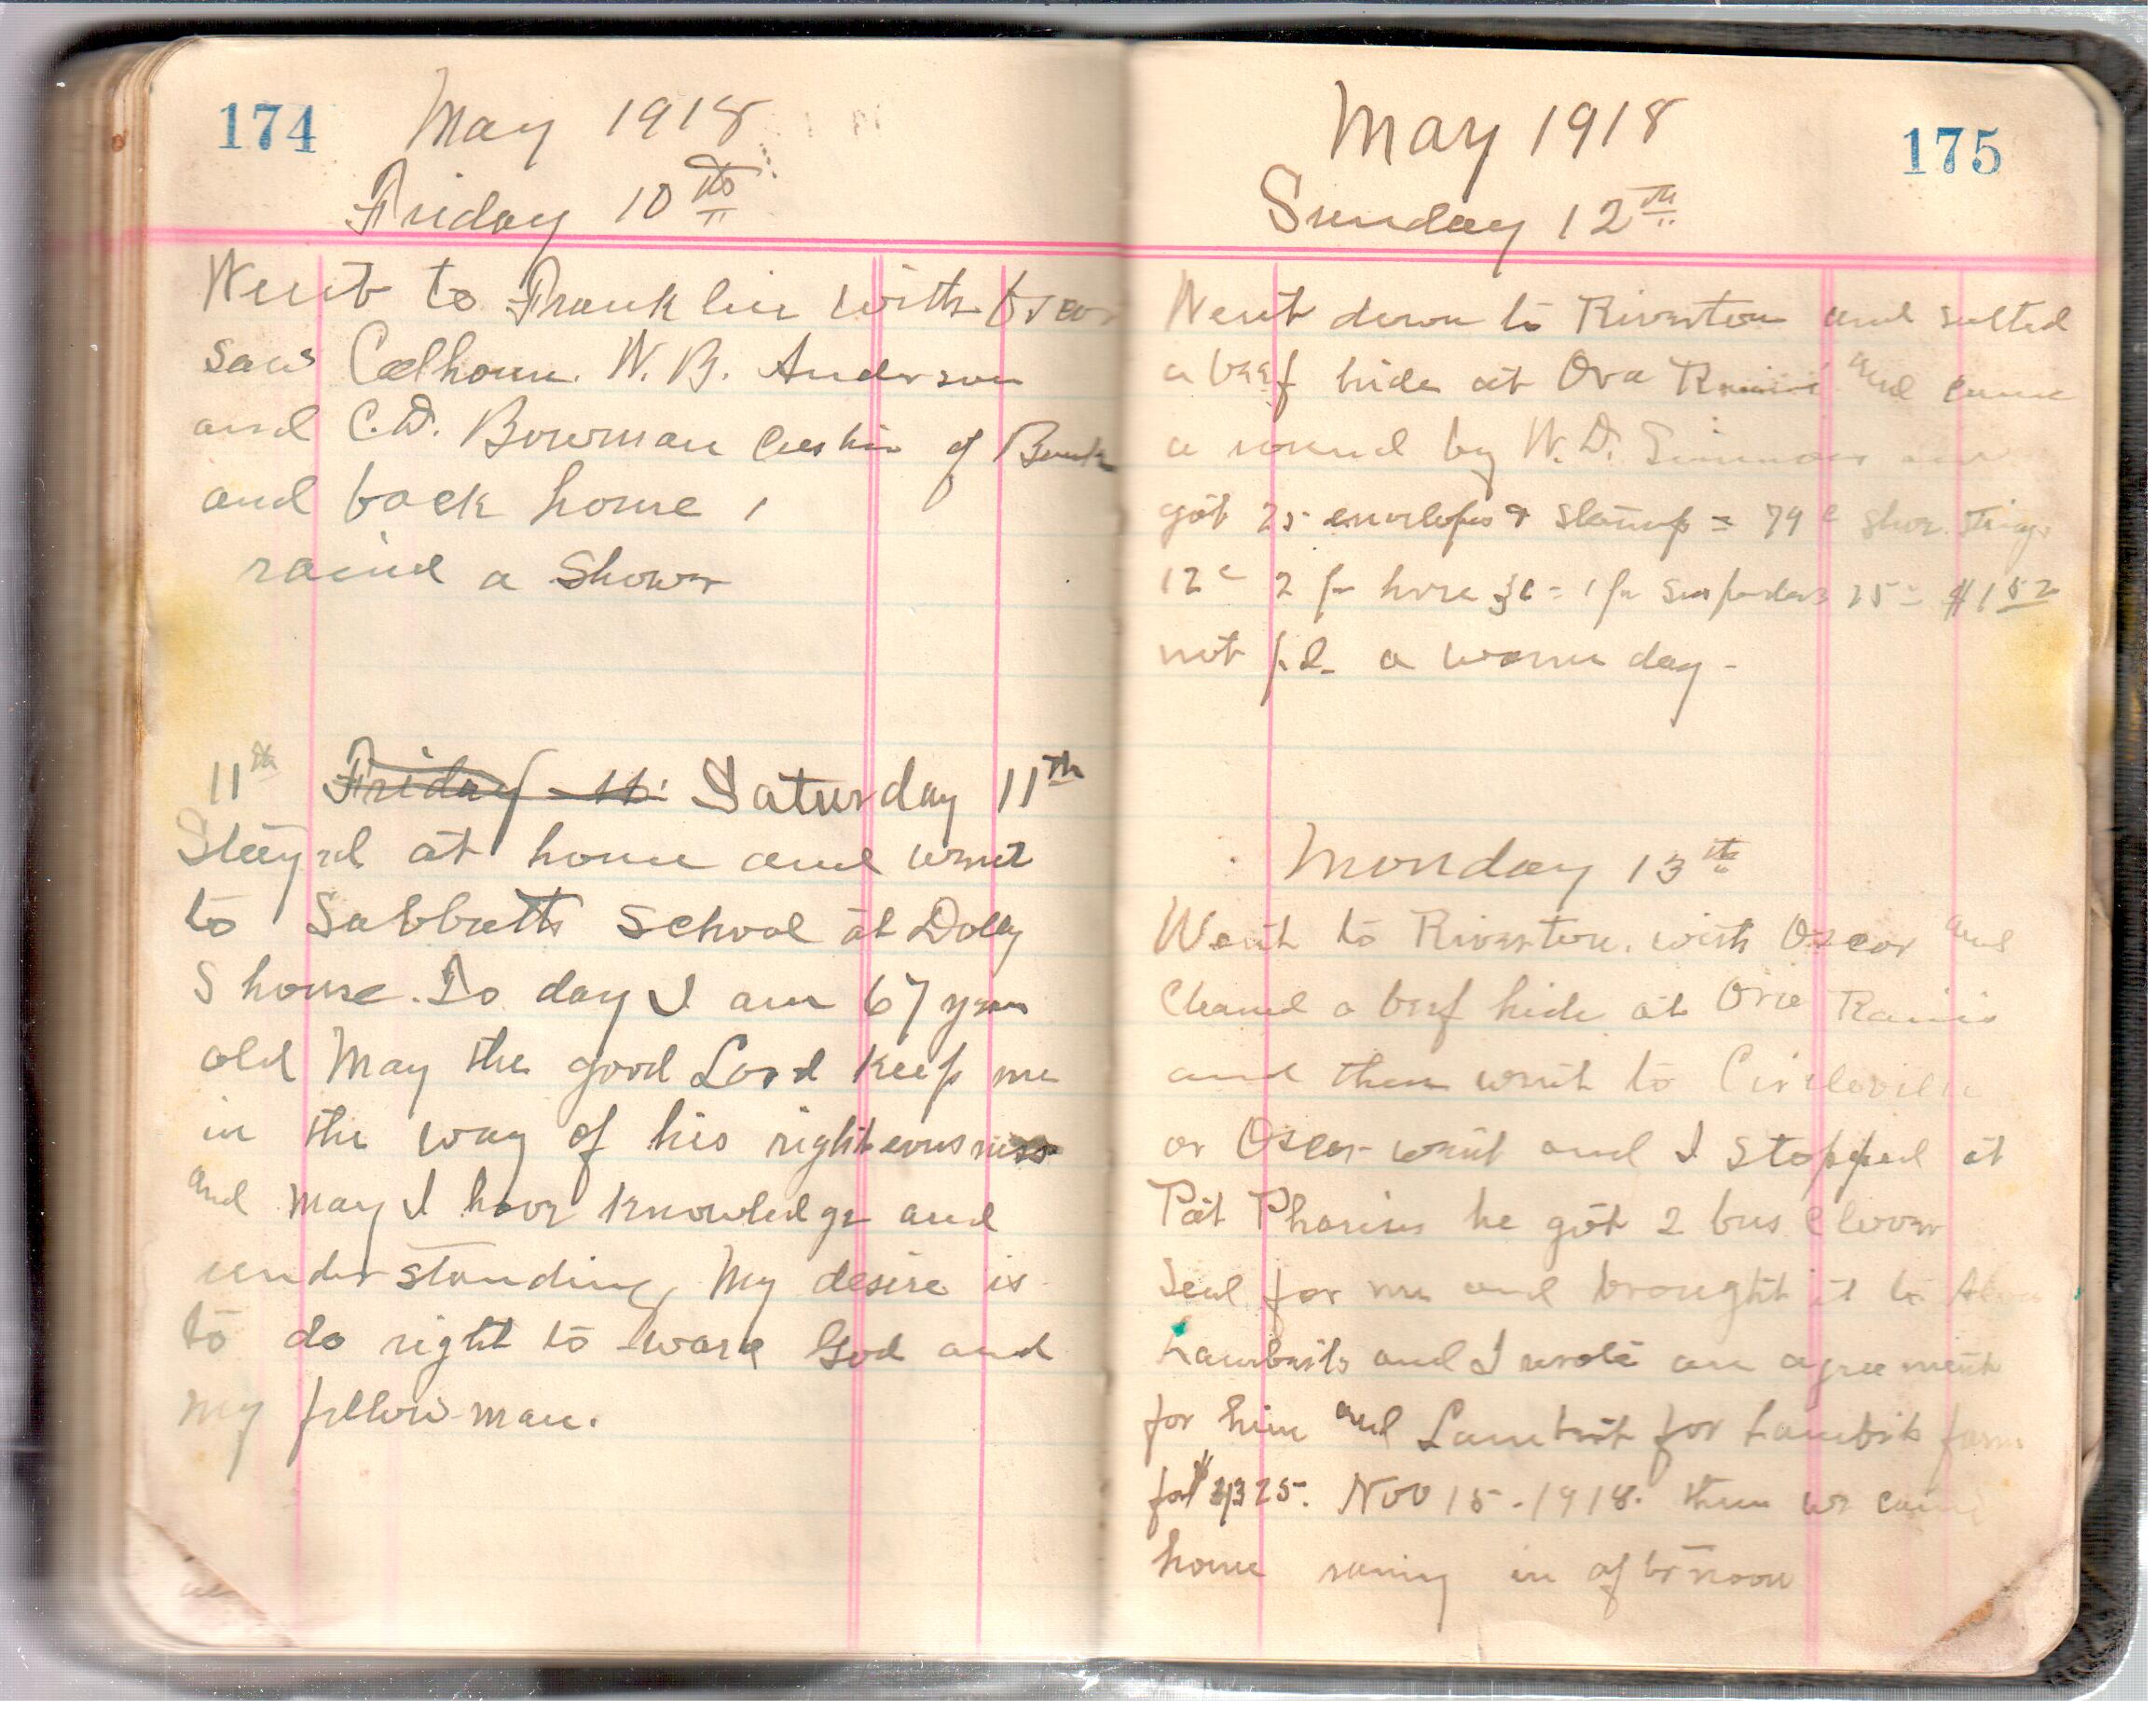 174
May 1918
Friday 10th
Went to Franklin with Oscar
saw Calhoun. W. B. Anderson
and C.D. Bowman Cashir of Bank
and back home,
raind a Shower
11th Friday 11. Saturday 11th
Stayed at home and went
to Sabbath School at Dolly
S house. To day I am 67 years
old May the good Lord Keep me
in the way of his righteousness
and may I have Knowledge and
under standing My desire is
to do right to ward God and
my fellow-man.
175
May 1918
Sunday 12th
Went down to Riverton and salted
a beef hide at Ova and came
a round by W. D. Simmons and
got 25 envelopes & stamp = 79¢ shoe strings
12¢ 2 pr hose 36 = 1 pr suspenders 25 = $1 52
not pd a warm day -
Monday 13th
Went to Riverton. with Oscar and
Cleaned a beef hide at Ovie Raines
and then went to Circleville
or Oscar went and I stopped at
Pat Phariss he got 2 bus Clover
Seed for me and brought it to
Lamberts and I wrote an agreement
for him and Lambert for Lamberts farm
for Nov 15 - 1918. then we came
home rainy in afternoon